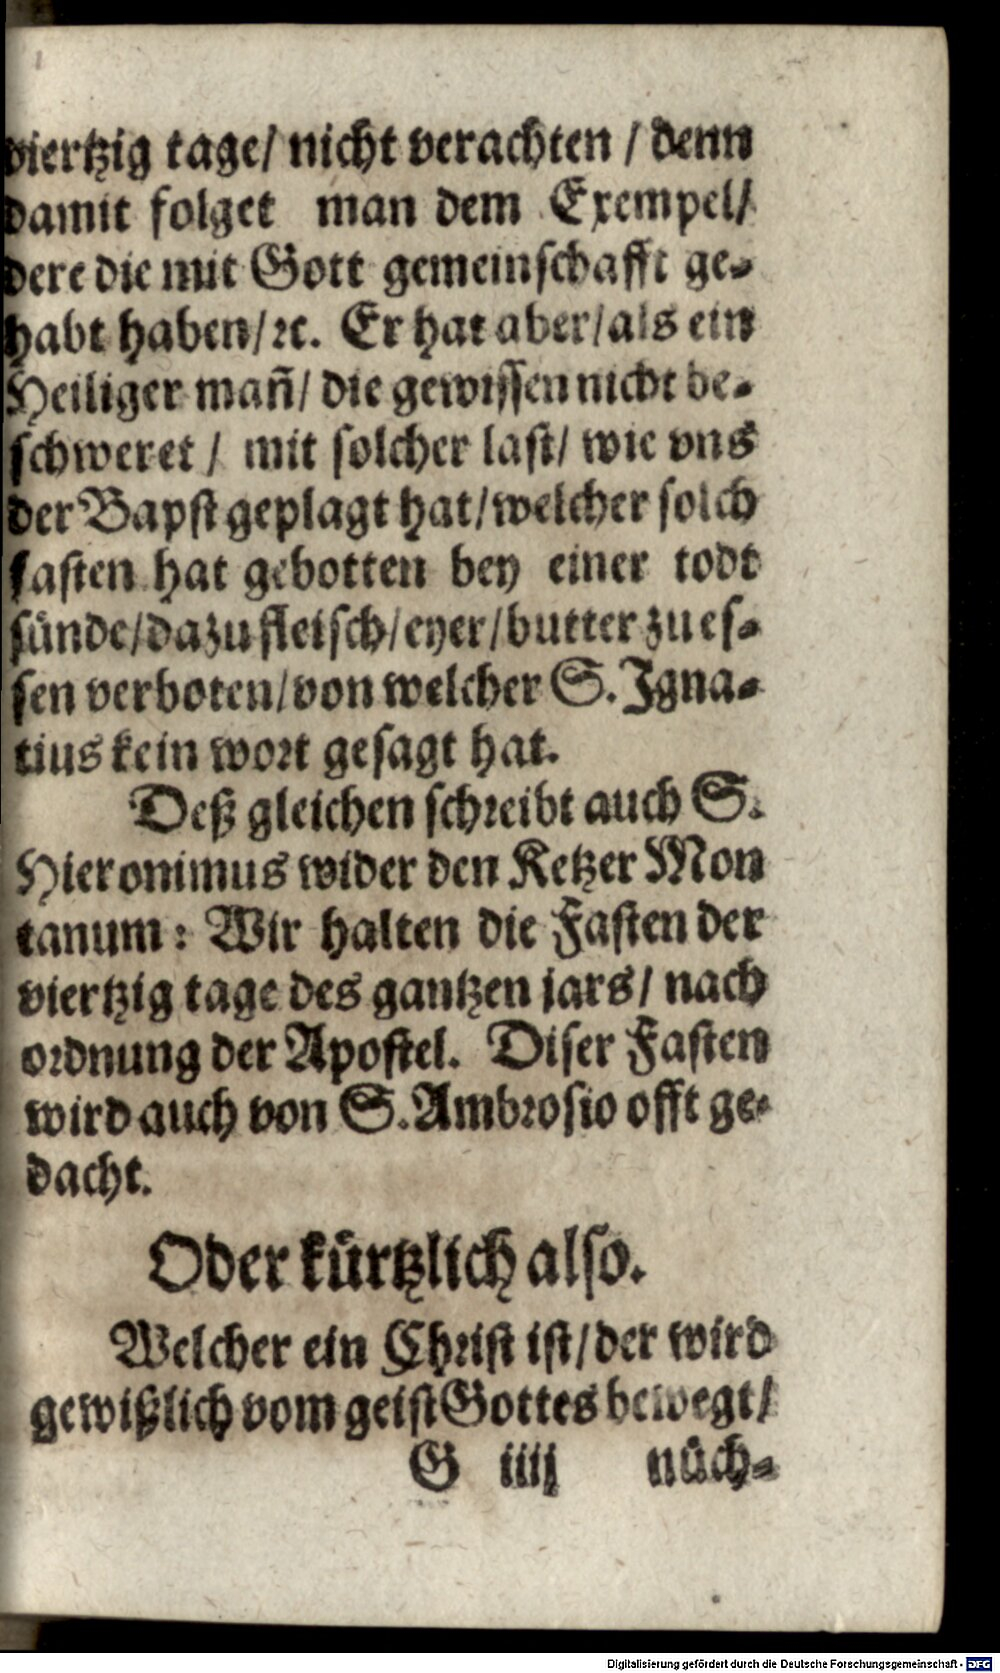 viertzig tage/ nicht verachten / denn
damit folget man dem Exempel/
dere die mit Gott gemeinschafft ge-
habt haben/ꝛc. Er hat aber/als ein
Heiliger mañ/ die gewissen nicht be-
schweret / mit solcher last/ wie vns
der Bapst geplagt hat/welcher solch
fasten hat gebotten bey einer todt
sünde/dazu fleisch/eyer/butter zu es-
sen verboten/von welcher S. Igna-
tius kein wort gesagt hat.
Deß gleichen schreibt auch S.
Hieronimus wider den Ketzer Mon
tanum: Wir halten die Fasten der
viertzig tage des gantzen jars/ nach
ordnung der Apostel. Diser Fasten
wird auch von S. Ambrosio offt ge-
dacht.
Oder kürtzlich also.
Welcher ein Christ ist/der wird
gewißlich vom geist Gottes bewegt/
G iiij nüch-
Digitalisierung gefördert durch die Deutsche Forschungsgemeinschaft - DFG